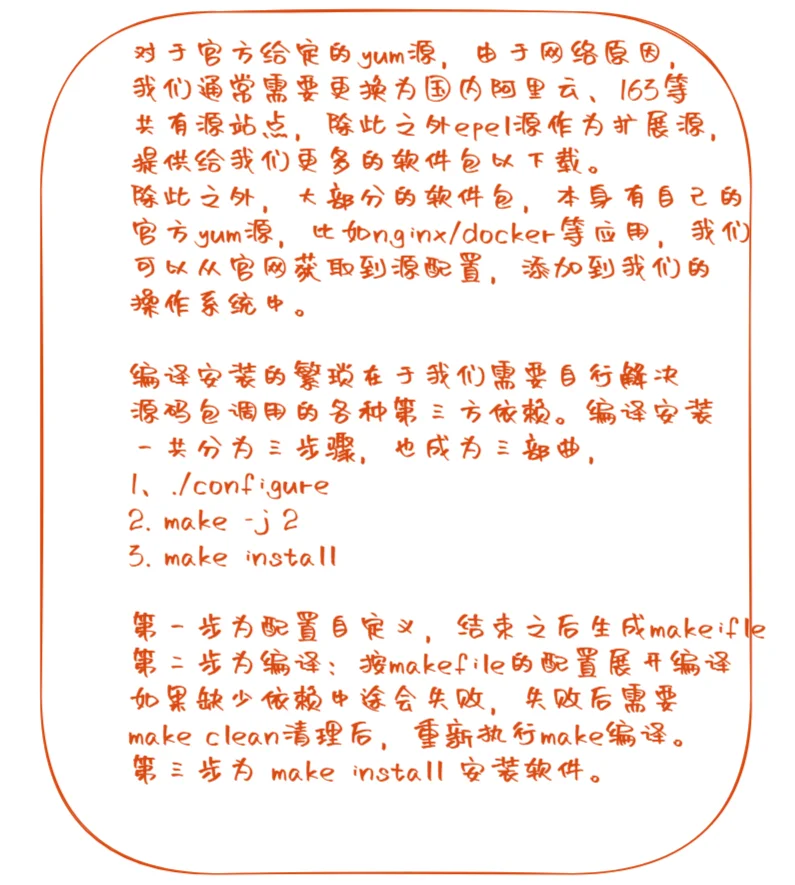 对于官方给定的yum源，由于网络原因，
我们通常需要更换为国内阿里云、163等
共有源站点，除此之外epel源作为扩展源，
提供给我们更多的软件包以下载。
除此之外，大部分的软件包，本身有自己的
官方yum源，比如nginx/docker等应用，我们
可以从官网获取到源配置，添加到我们的
操作系统中。
编译安装的繁琐在于我们需要自行解决
源码包调用的各种第三方依赖。编译安装
一共分为三步骤，也成为三部曲，
1、./configure
2. make -j 2
3. make install
第一步为配置自定义，结束之后生成makeifle
第二步为编译：按makefile的配置展开编译
如果缺少依赖中途会失败，失败后需要
make clean清理后，重新执行make编译。
第三步为 make install 安装软件。